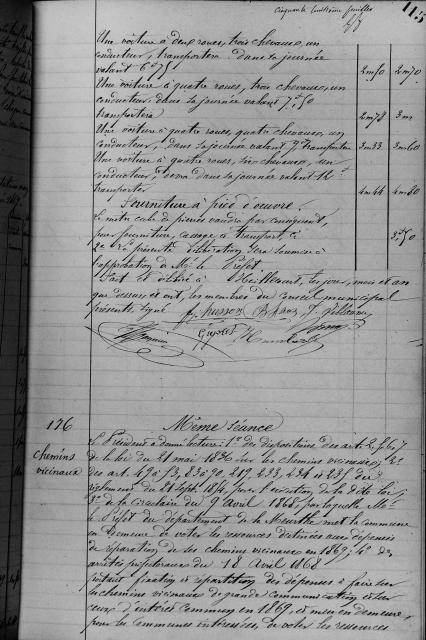 Cinquante huitième feuillet
115
Une voiture à deux roues, trois chevaux, un
conducteur, transportera dans la journée
valant 6f 75 2m 50 2m 70
Une voiture à quatre roues, trois chevaux, un
conducteur dans sa journée valant 7f 50
transportera 2m 78 3m
Une voiture à quatre roues, quatre chevaux, un
conducteur, dans sa journée valant 9f transportera 3m 33 3m 60
Une voiture à quatre roues, six chevaux, un
conducteur, devra dans sa journée valant 12f
transporter 4m 44 4m 80
Fourniture à pied d'oeuvre.
Le mètre cube de pierres vaudra par conséquent,
pour fourniture, cassage & transport, 3f 50
La présente délibération sera soumise à
l'approbation de Mr le Préfet.
Fait et délibéré à Reillecourt, les jour, mois et an
que dessus, et ont, les membres du Conseil municipal
présents, signé Husson
176
Chemins
vicinaux
Même Séance
Le Président a donné lecture: 1o des dispositions des art. 2, 5, 6, 7
de la loi du 21 mai 1836 sur les chemins vicinaux; 2o
des art. 49 à 53, 83 à 90, 219, 233, 234 et 235 du
règlement du sept. 1854, pour l'exécution de la dite loi;
3o de la circulaire du 9 avril 1868, par laquelle Mr
le Préfet du département de la Meurthe met la commune
en demeure de voter les ressources destinées aux dépenses
de réparation de ses chemins vicinaux en 1869; 4o des
arrêtés préfectoraux du 18 Avril 1868
portant fixation & répartition des dépenses à faire sur
les chemins vicinaux de grande communication et sur
ceux d'intérêt commun en 1869 et mise en demeure,
pour les communes intéressées de voter les ressources